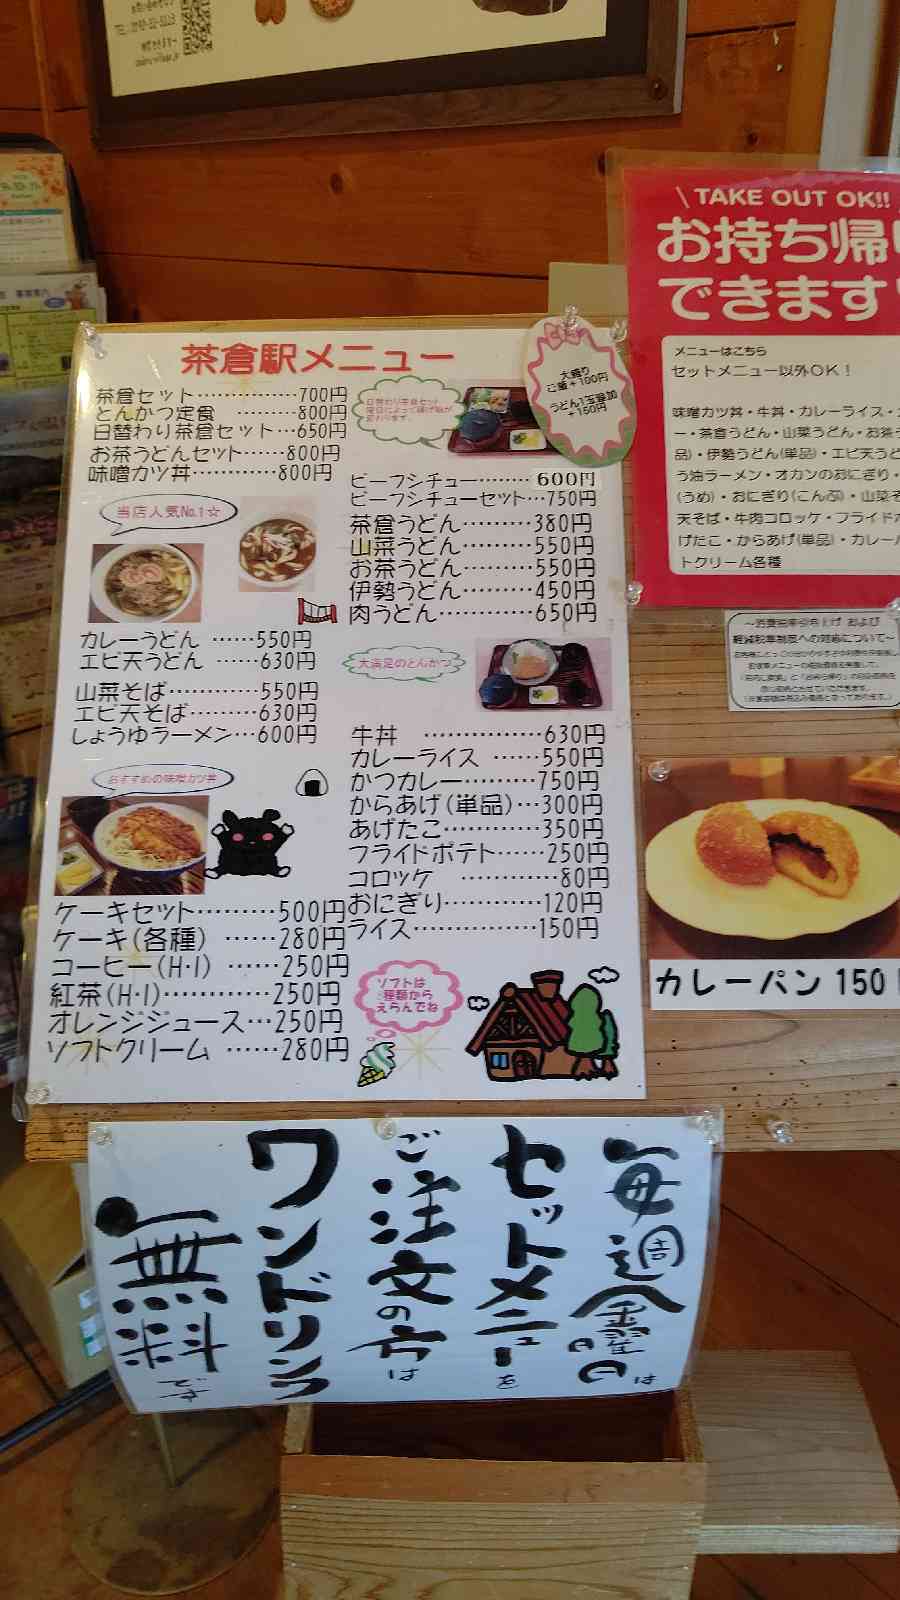 茶倉駅メニュー
茶倉セット……………700円
とんかつ定食…………800円
日替わり茶倉セット…650円
お茶うどんセット……800円
味噌カツ丼…………800円
大盛り
ご飯+100円
うどん1玉追加
+150円
当店人気No.1☆
ビーフシチュー………600円
ビーフシチューセット…750円
茶倉うどん………380円
山菜うどん………550円
お茶うどん………550円
伊勢うどん………450円
肉うどん…………650円
カレーうどん ……550円
エビ天うどん ……630円
山菜そば…………550円
エビ天そば………630円
しょうゆラーメン…600円
大満足のとんかつ
おすすめの味噌カツ丼
牛丼 ……………630円
カレーライス ……550円
かつカレー………750円
からあげ(単品)…300円
あげたこ…………350円
フライドポテト……250円
コロッケ …………80円
おにぎり…………120円
ライス……………150円
ケーキセット………500円
ケーキ(各種) ……280円
コーヒー(H・I) ……250円
紅茶(H・I)…………250円
オレンジジュース…250円
ソフトクリーム ……280円
ソフトは
種類から
えらんでね
\ TAKE OUT OK!!
お持ち帰り
できます
メニューはこちら
セットメニュー以外OK!
味噌カツ丼・牛丼・カレーライス・
ー・茶倉うどん・山菜うどん・お茶う
品)・伊勢うどん(単品)・エビ天うど
う油ラーメン・オカンのおにぎり・
(うめ)・おにぎり(こんぶ)・山菜そ
天そば・牛肉コロッケ・フライドポ
げたこ・からあげ(単品)・カレーパ
トクリーム各種
〜消費税率引き上げ および
軽減税率制度への対応について〜
カレーパン 150
毎週金曜日は
セットメニューを
ご注文の方は
ワンドリンク
無料です